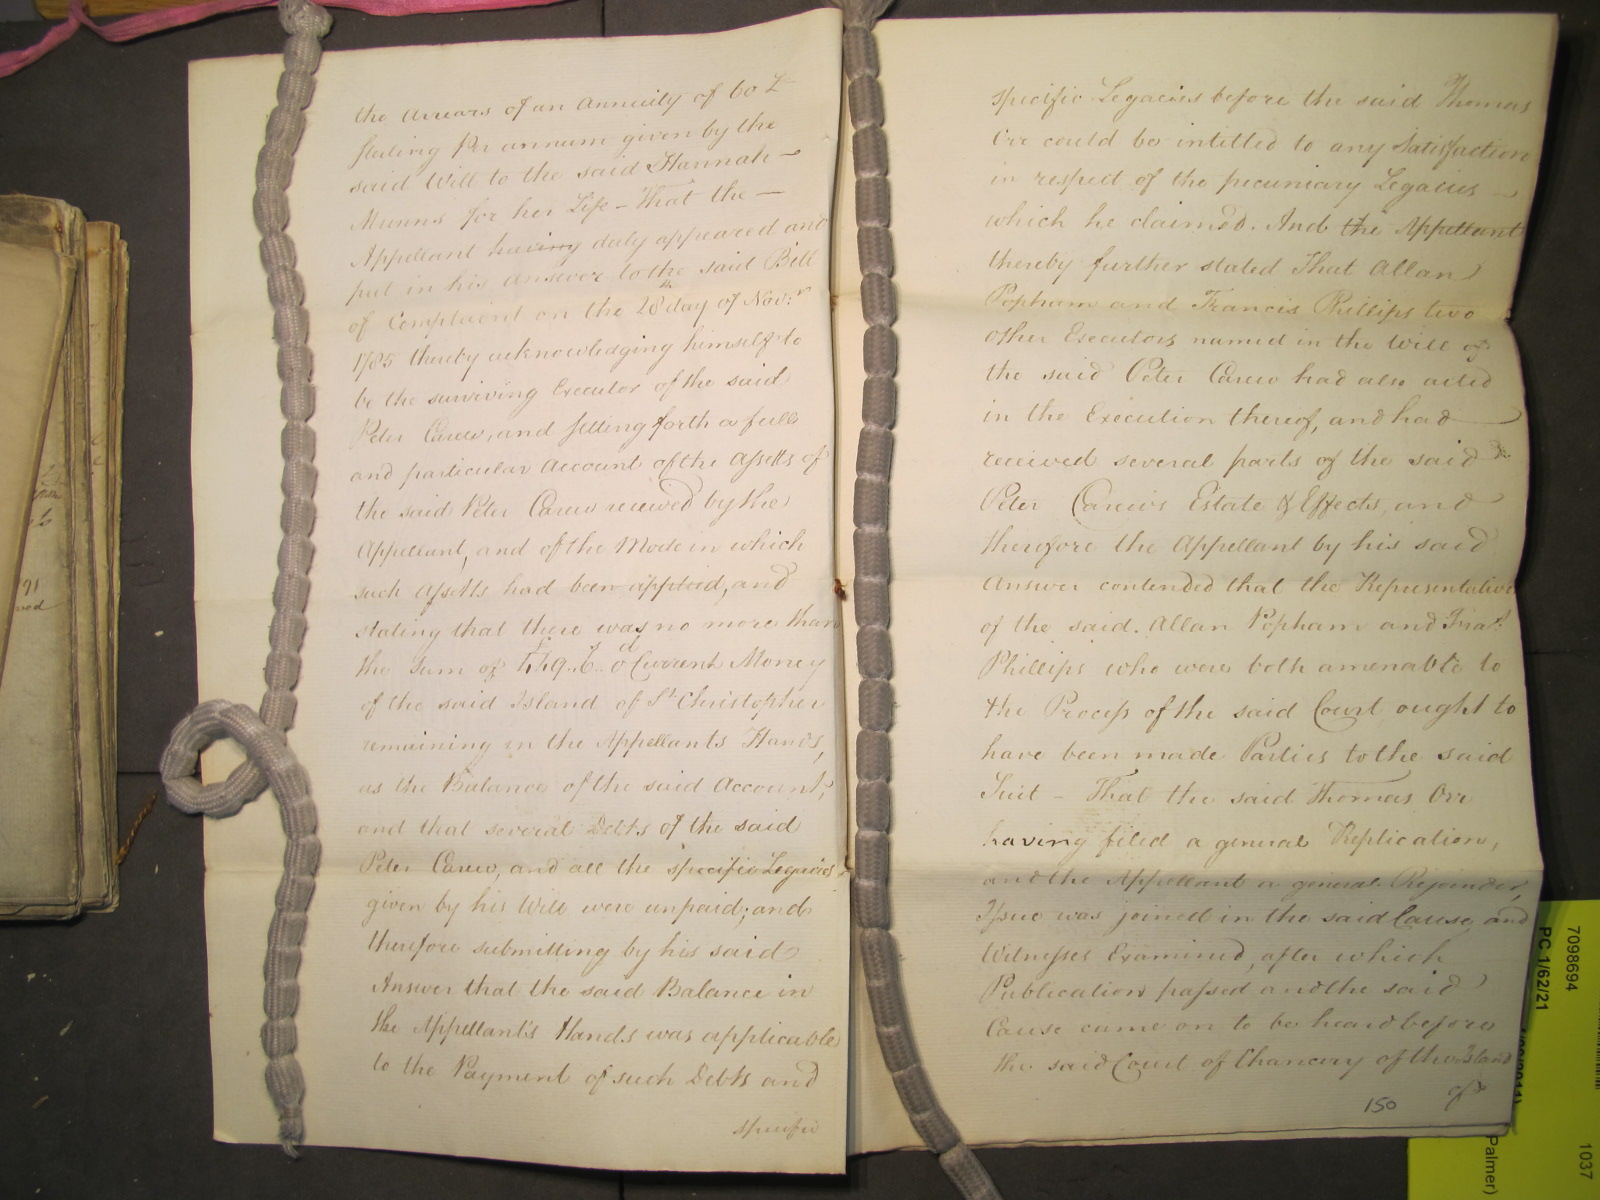 the Arrears of an Annuity of 60 £
sterling Per annum given by the
said Will to the said Hannah
Munns for her Life - That the
Appellant having duly appeared and
put in his Answer to the said Bill
of Complaint on the 28th day of Nov:r
1785 thereby acknowledging himself to
be the surviving Executor of the said
Peter Carew, and setting forth a full
and particular Account of the Assetts of
the said Peter Carew received by the
Appellant, and of the Mode in which
such Assetts had been applied, and
stating that there was no more than
the Sum of Current Money
of the said Island of St Christopher
remaining in the Appellants Hands,
as the Balance of the said Account,
and that several Debts of the said
Peter Carew, and all the specific Legacies
given by his Will were unpaid; and
therefore submitting by his said
Answer that the said Balance in
the Appellant's Hands was applicable
to the Payment of such Debts and
specific
specific Legacies before the said Thomas
Orr could be intitled to any Satisfaction
in respect of the pecuniary Legacies
which he claimed. And the Appellant
thereby further stated That Allan
Popham and Francis Phillips two
other Executors named in the Will of
the said Peter Carew had also acted
in the Execution thereof, and had
received several parts of the said
Peter Carew's Estate & Effects, and
therefore the Appellant by his said
Answer contended that the Representative
of the said Allan Popham and
Phillips who were both amenable to
the Process of the said Court ought to
have been made Parties to the said
Suit - That the said Thomas Orr
having filed a general Replication,
and the Appellant a general Rejoinder,
Issue was joined in the said Cause, and
Witnesses Examined, after which
Publication passed and the said
Cause came on to be heard before
the said Court of Chancery of the Island
of
150
7098694
PC 1/62/21
1037
Palmer)
91